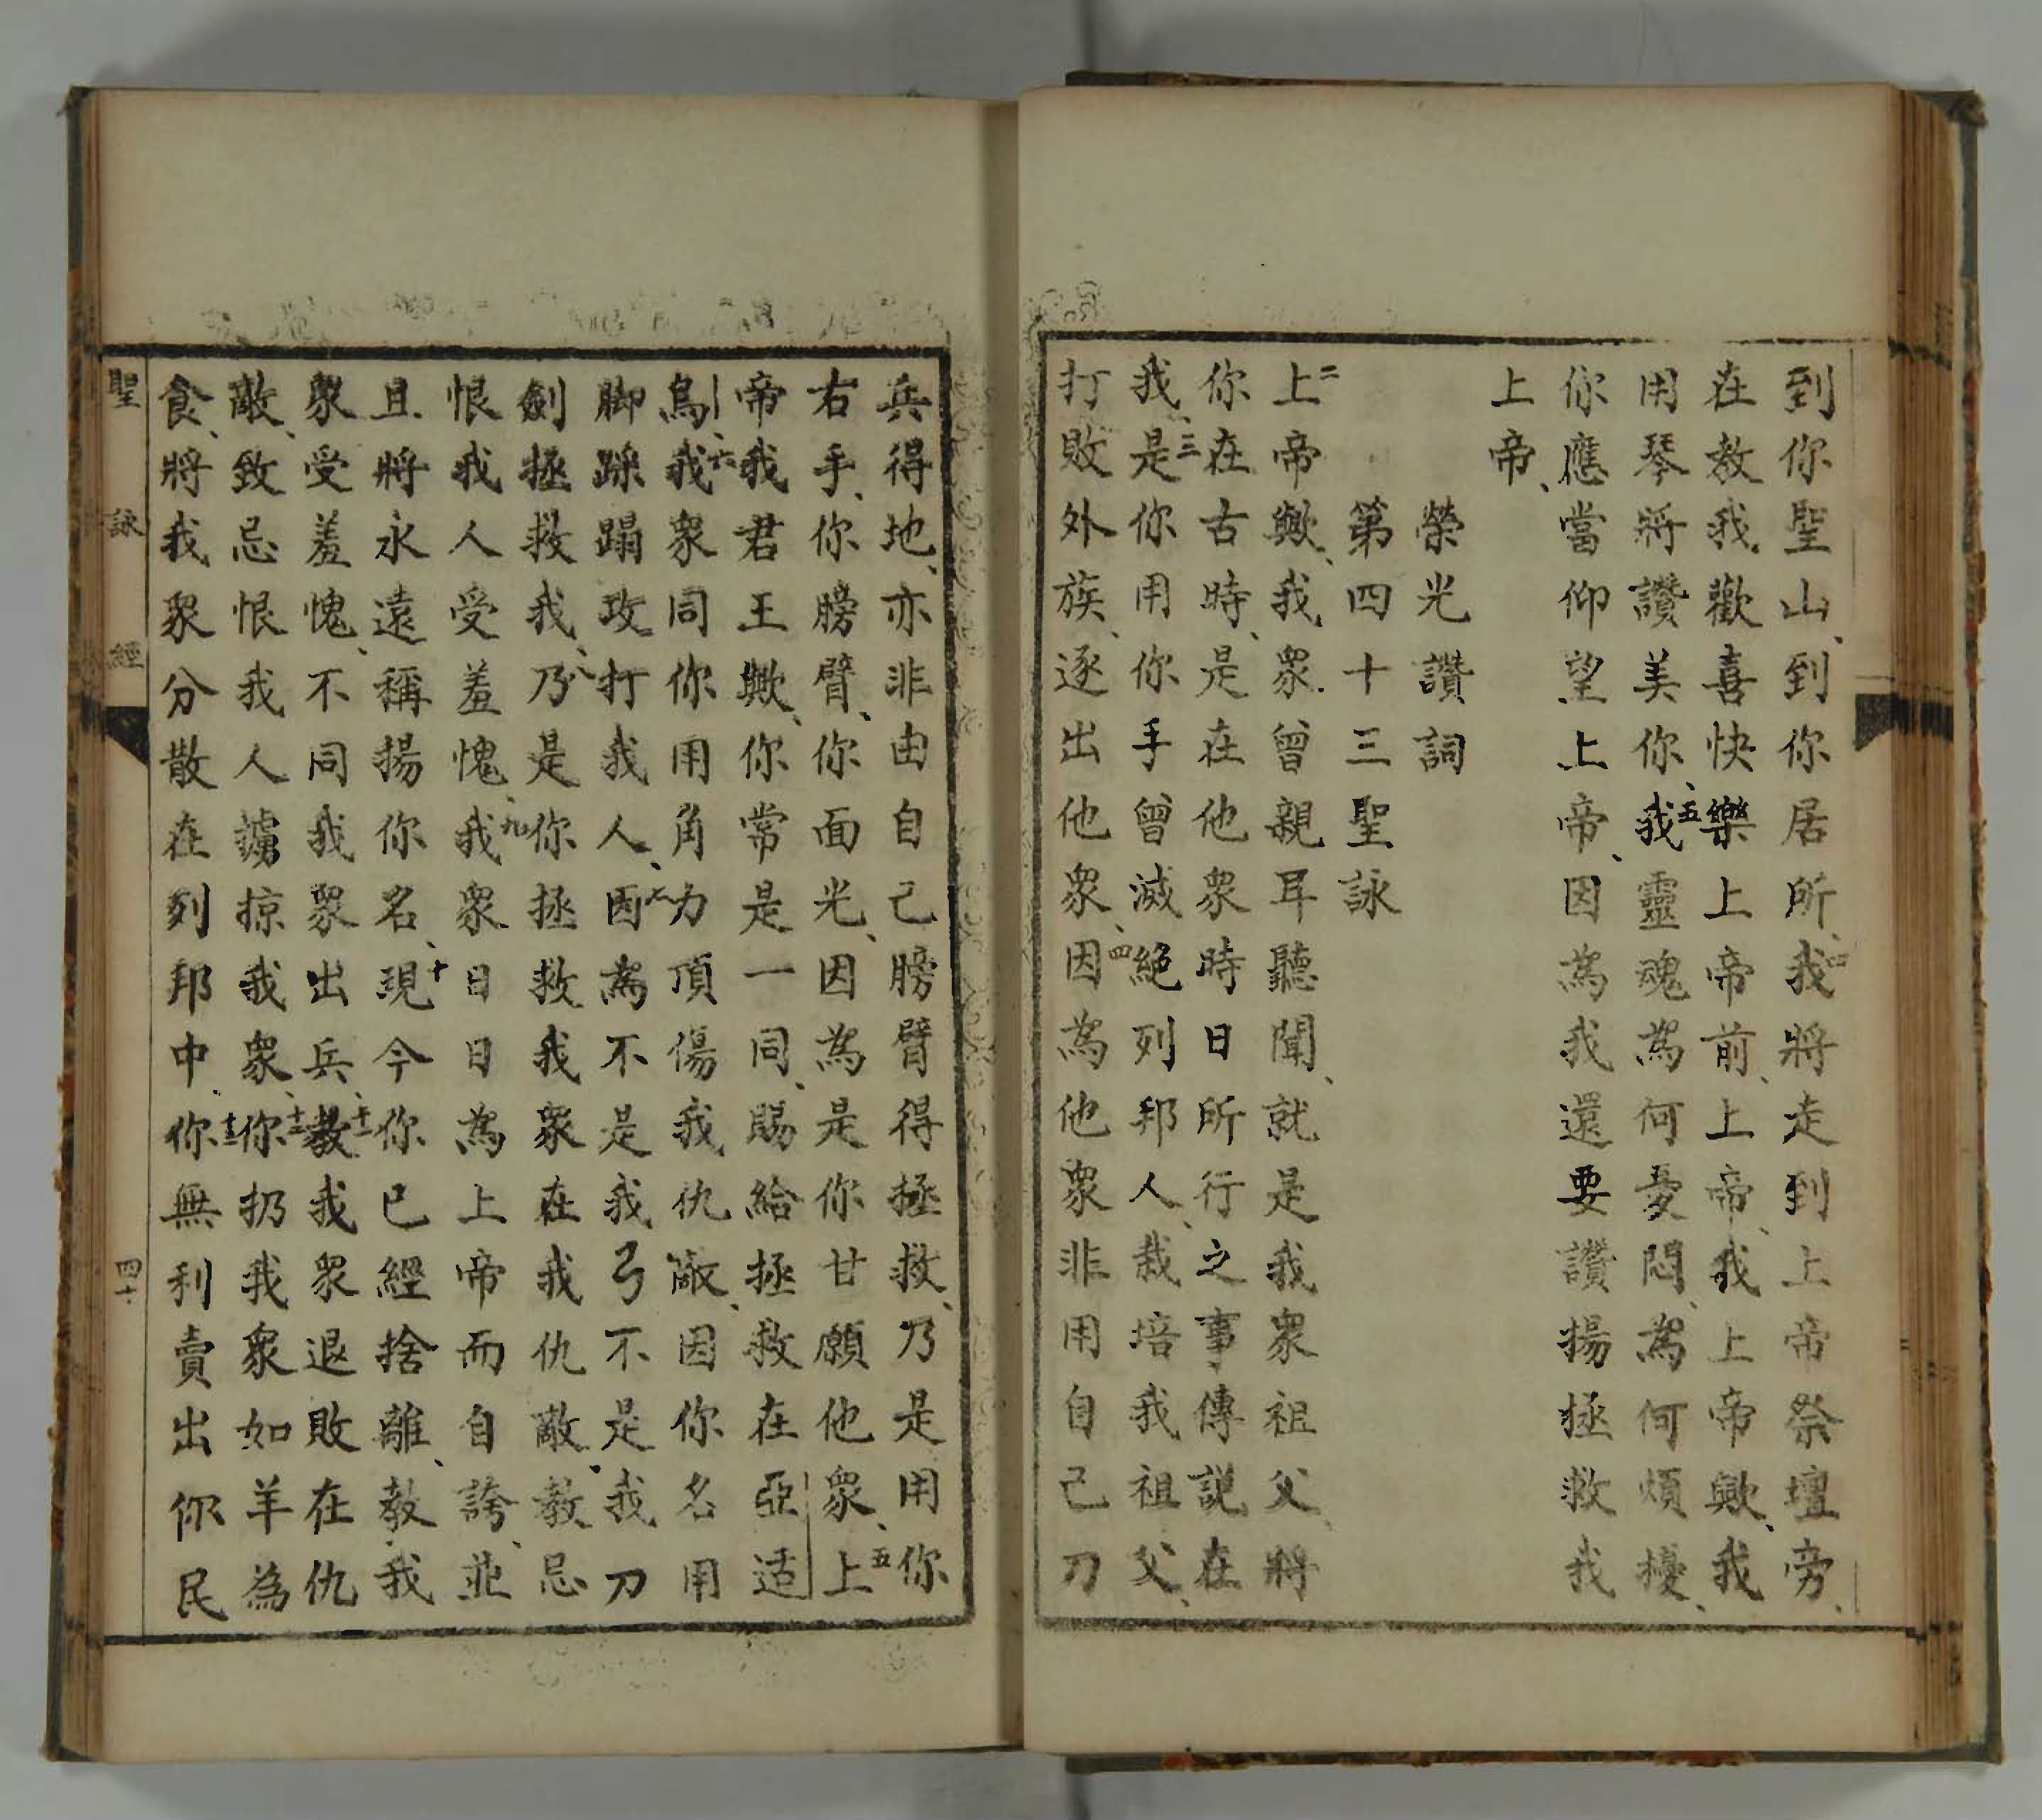 到你聖山、到你居所、四我將走到上帝祭壇旁、
在教我歡喜快樂上帝前、上帝、我上帝歟、我
用琴將讚美你、五我靈魂為何憂悶、為何煩擾、
你應當仰望上帝、因為我還要讚揚拯救我
上帝、
榮光讚詞
第四十三聖詠
二上帝歟、我衆曾親耳聽聞、就是我衆祖父、將
你在古時、是在他衆時日所行之事、傳説在
我、三是你用你手曾滅絶列邦人、栽培我祖父、
打敗外族、逐出他衆、四因為他衆非用自己刀
兵得地、亦非由自己膀臂得拯救、乃是用你
右手、你膀臂、你面光、因為是你甘願他衆、五上
帝我君王歟、你常是一同、賜給拯救在亞适
烏、六我衆同你用角力頂傷我仇敵、因你名用
脚踩蹋攻打我人、七因為不是我弓不是我刀
劍拯救我、八乃是你拯救我衆在我仇敵、教忌
恨我人受羞愧、九我衆日日為上帝而自誇、並
且將永遠稱揚你名、十現今你已經捨離、教我
衆受羞愧、不同我衆出兵、十一教我衆退敗在仇
敵、致忌恨我人擄掠我衆、十二你扔我衆如羊為
食、將我衆分散在列邦中、十三你無利賣出你民
聖詠經 四十